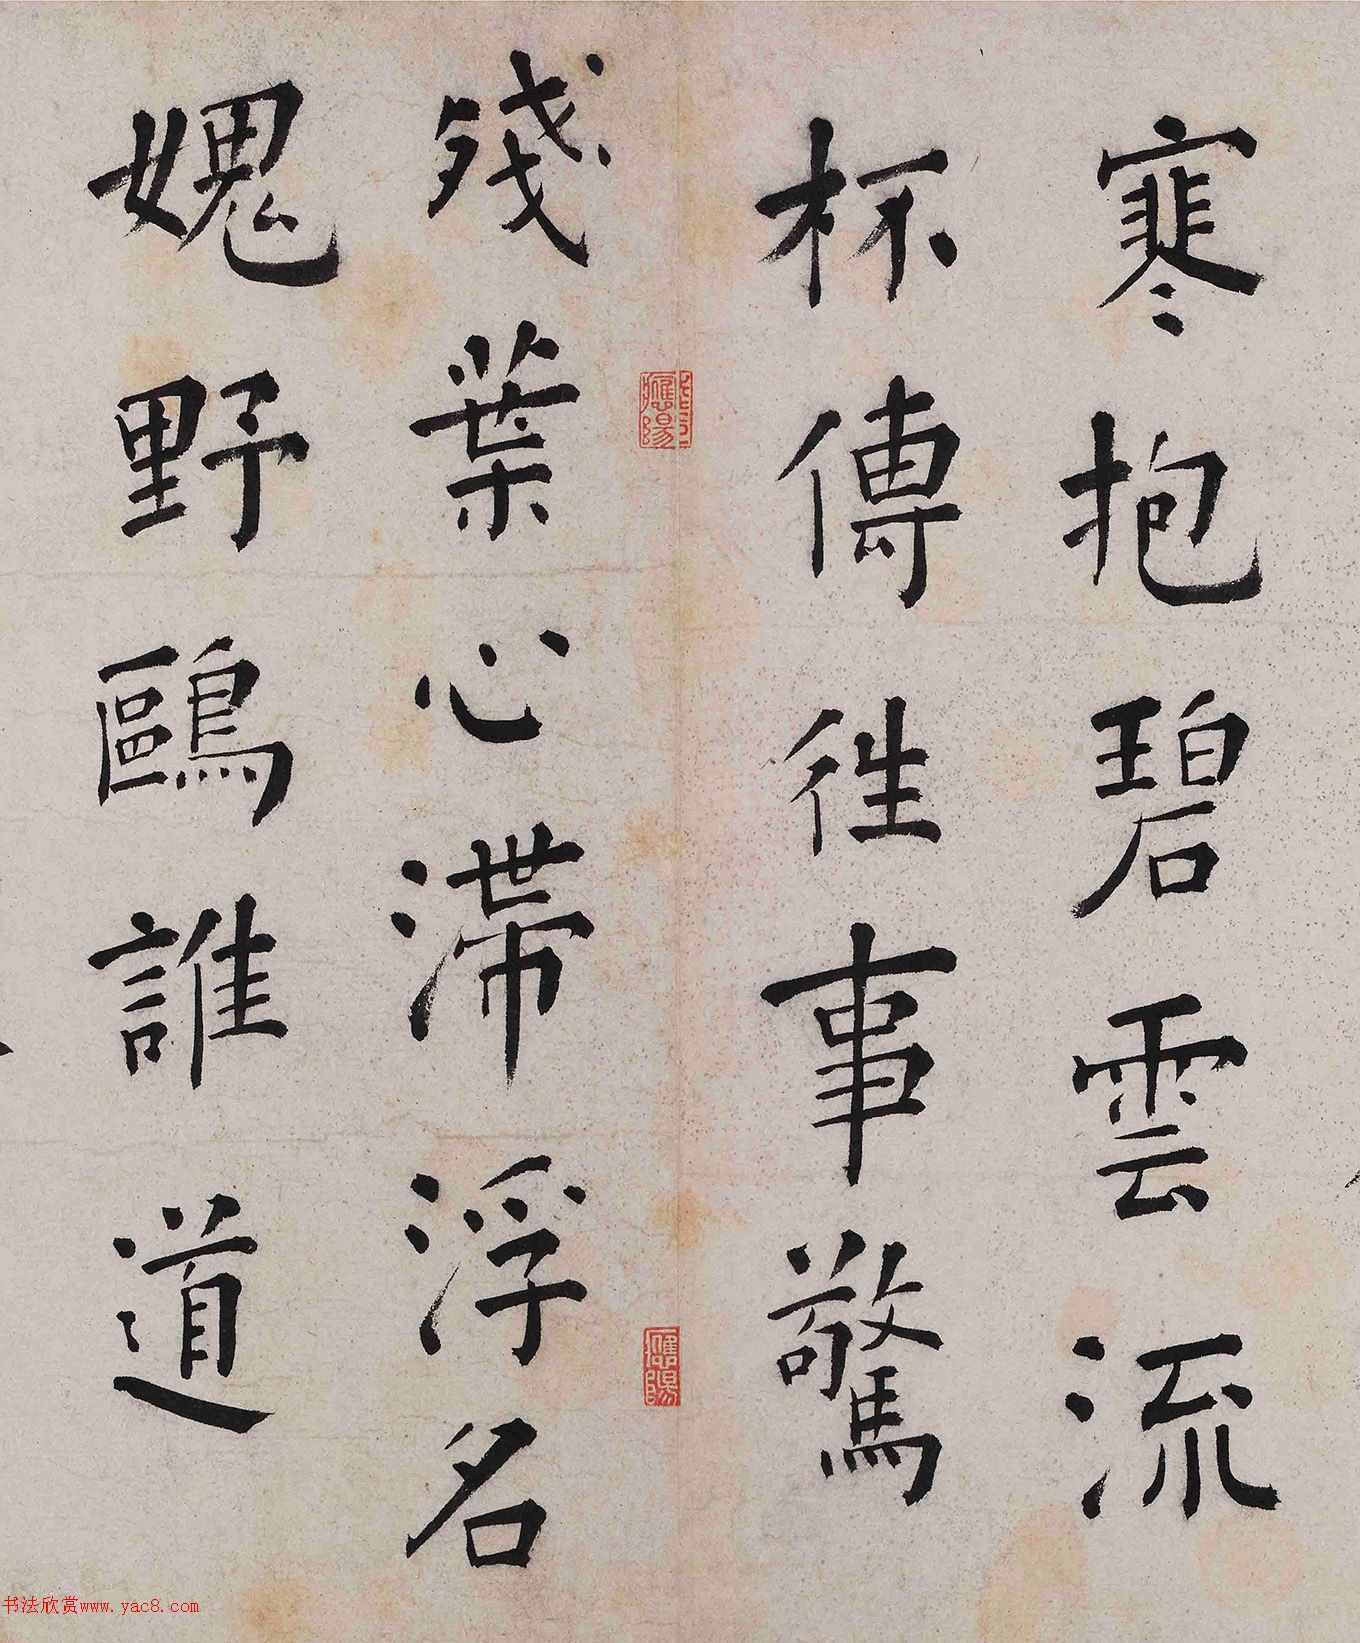 寒抱碧雲流
杯傳往事驚
殘葉心滯浮名
媿野鷗誰道
應陽
書法欣赏www.yac8.com